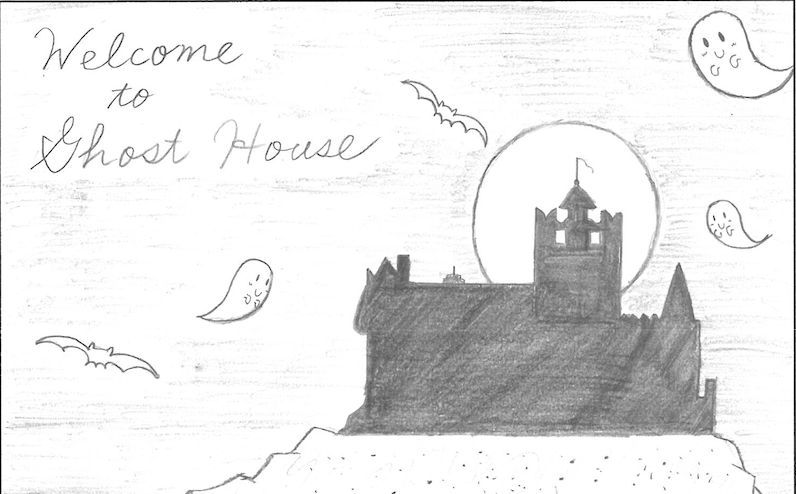 Welcome
to
Ghost House